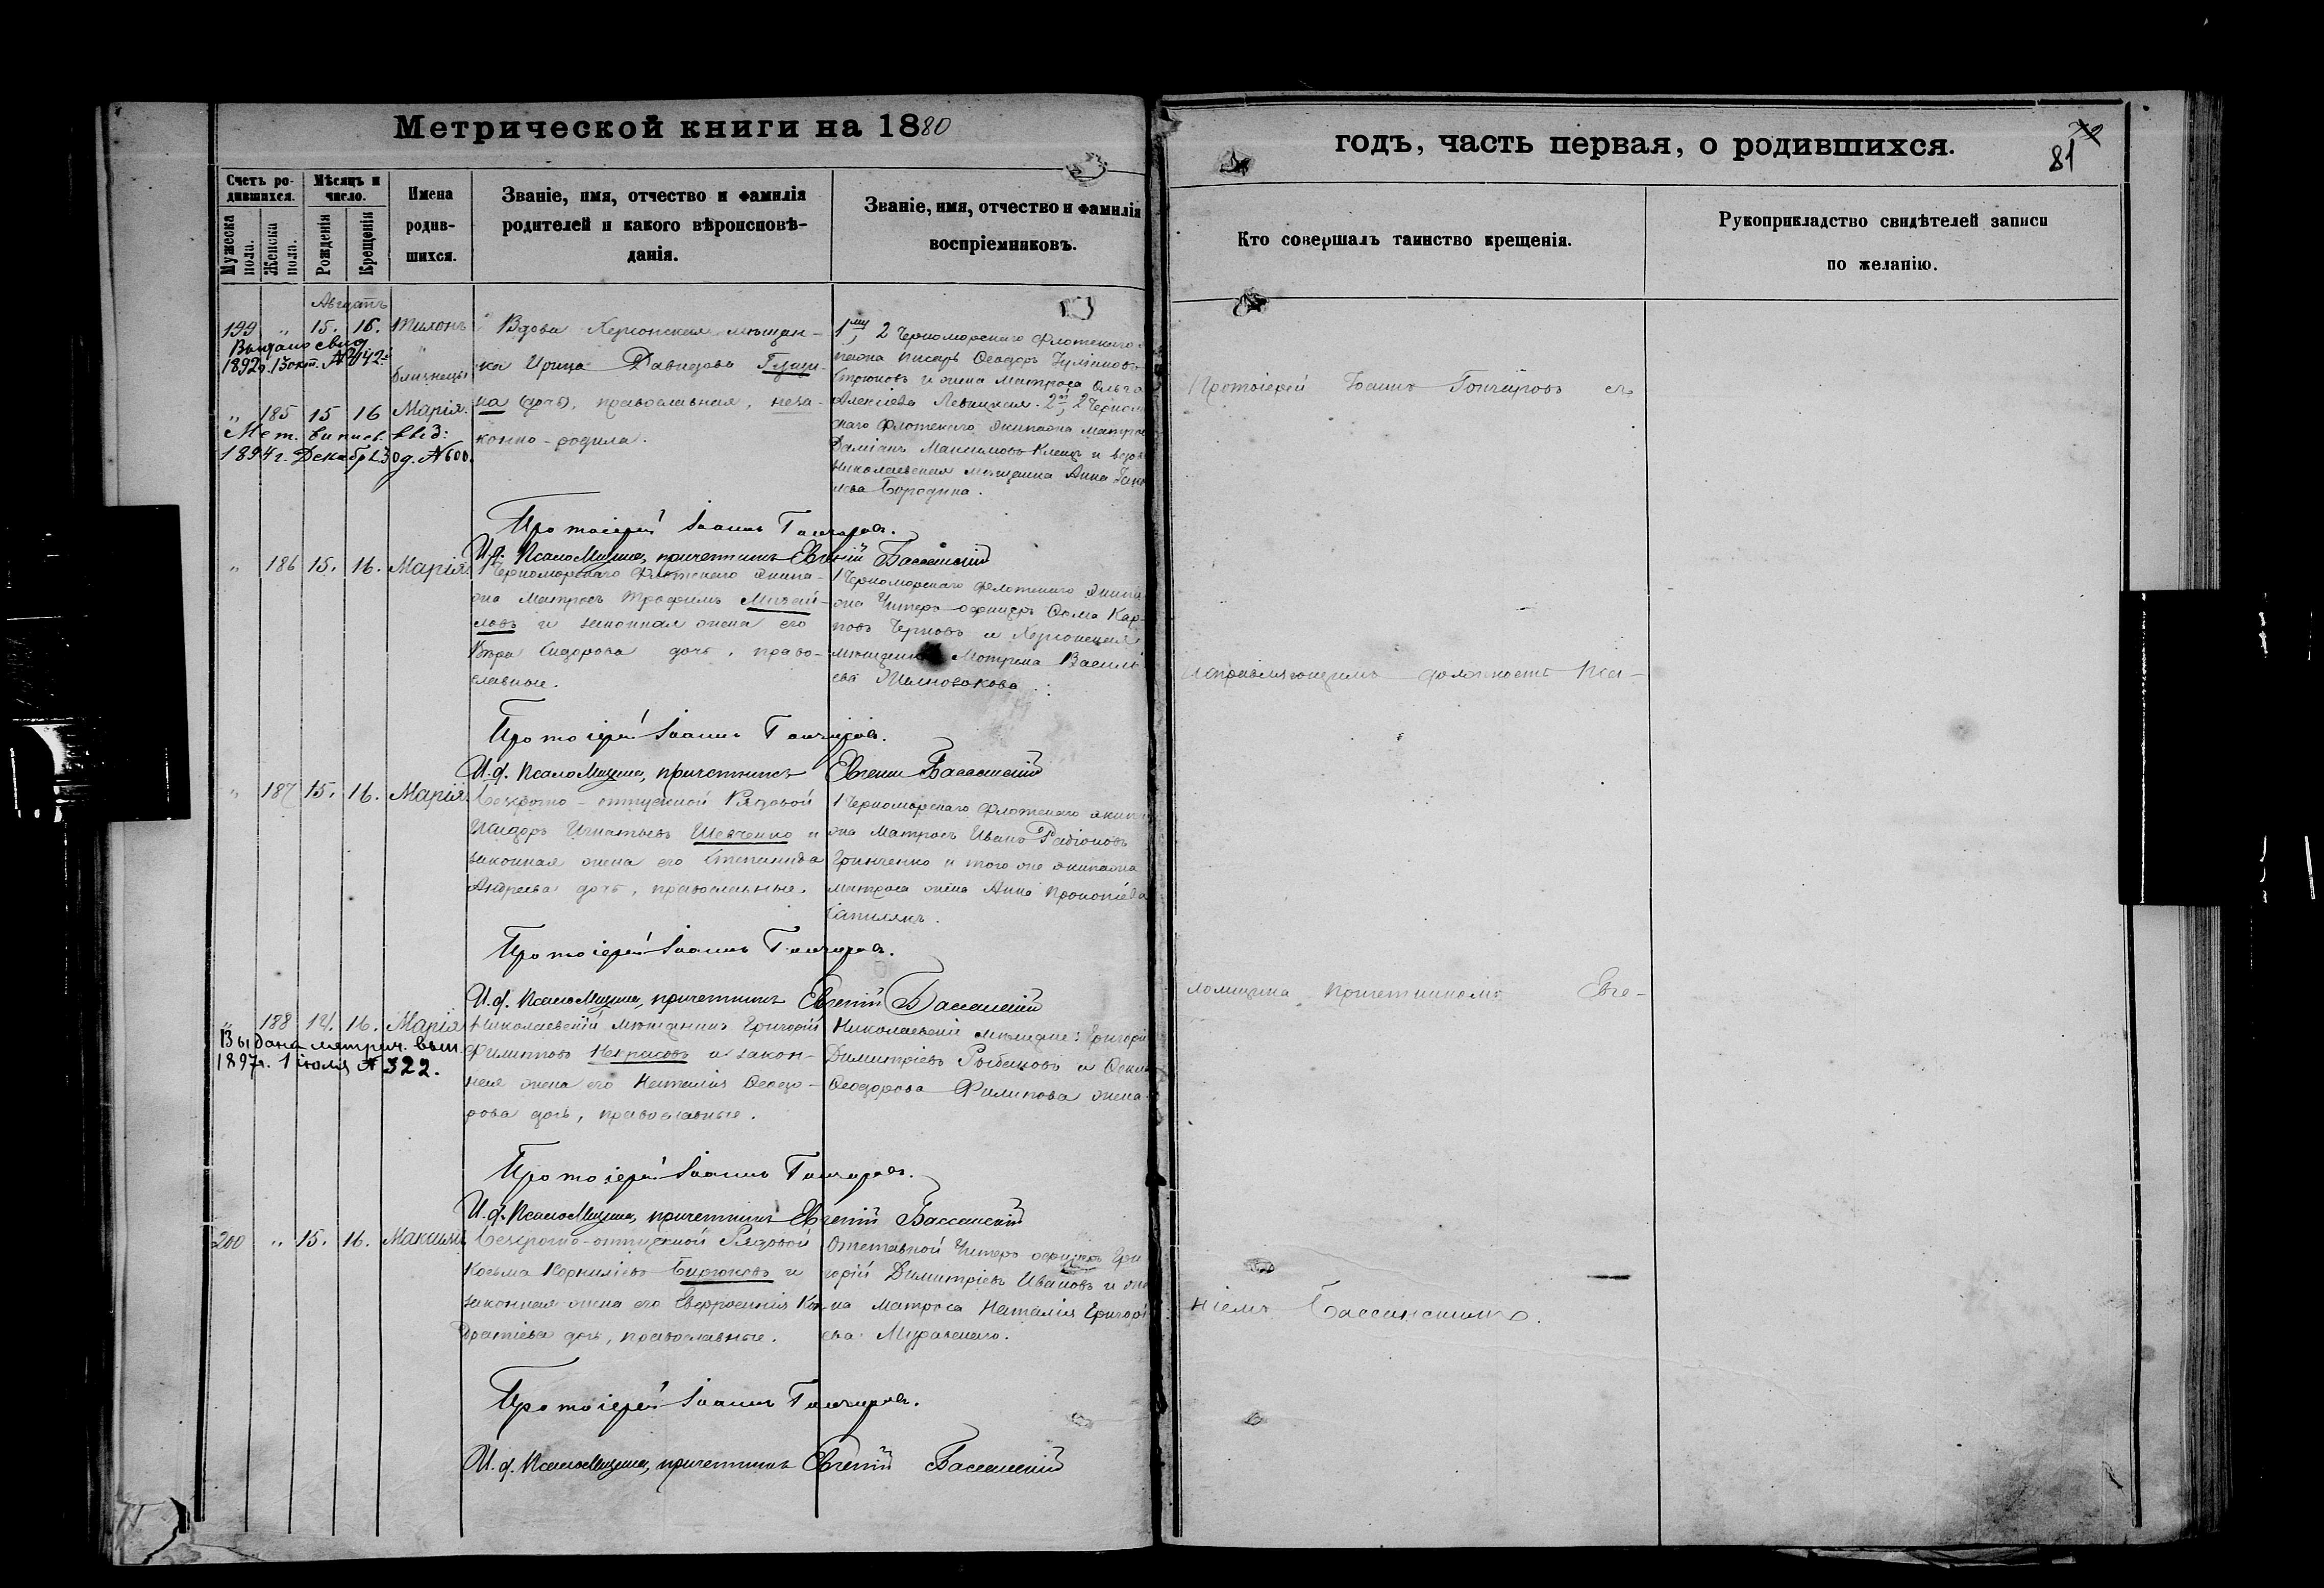 Метрической книги на 1880
годъ, часть первая, о родившихся.
81
Счетъ родившихся.
Мужеска пола.
Женска пола.
Мѣсяцъ и число.
Рожденія
Крещенія
Имена родившихся.
Званіе, имя, отчество и фамилія
родителей и какого вѣроисповѣ-
данія.
Званіе, имя, отчество и фамилія
воспріемниковъ.
Кто совершалъ таинство крещенія.
Рукоприкладство свидѣтелей записи
по желанію.
Августъ
199 " 15. 16. Тихонъ
Выдано свид.
1892 г. 13 окт. № 442
близнецы
" 185 15 16 Марія.
Мет. выпись выд:
1894 г. Декабря 30 д. № 600.
Вдова Херсонская мѣщан-
ка Ирина Давидова
на (дочь), православная, неза-
конно-родила.
1му, 2 Черноморскаго Флотскаго
писарь Ѳеодоръ
и жена матроса Ольга
Алексѣева Левицкая. 2й, 2 Черном
скаго Флотскаго экипажа матрос
Даміанъ Максимовъ и вдова
Николаевская мѣщанка Анна Яков
лева Бородина.
Протоіерей Іоаннъ Гончаровъ.
И.д. Псаломщика, причетникъ Евгеній Бассанскій
" 186 15. 16. Марія.
1 Черноморскаго Флотскаго экипа-
жа Матросъ Трофимъ Михай-
ловъ и законная жена его
Вѣра Сидорова дочь, право-
славные.
1 Черноморскаго Флотскаго экипа
жа Унтеръ-офицеръ Ѳома Кар-
повъ Черновъ и Херсонская
мѣщанка Мотрена Василь
ева
Протоіерей Іоаннъ Гончаровъ.
И.д. Псаломщика, причетникъ Евгеній Бассанскій
" 187 15. 16. Марія.
Безсрочно-отпускной Рядовой
Исидоръ Игнатьевъ Шевченко и
законная жена его Степанида
Андреева дочь, православные.
1 Черноморскаго Флотскаго экипа
жа Матросъ Иванъ Радіоновъ
Гринченко и того же экипажа
матроса жена Анна Прокопіева
Протоіерей Іоаннъ Гончаровъ.
И.д. Псаломщика, причетникъ Евгеній Бассанскій
" 188 14. 16. Марія
Выдана метрич. вып.
1897 г. 1 іюля № 322.
Николаевскій мѣщанинъ Григорій
Филиповъ Некрасовъ и закон-
ная жена его Наталія Ѳеодо-
рова дочь, православные.
Николаевскій мѣщанинъ Григорій
Димитріевъ Рыбаковъ и
Ѳеодорова Филипова жена
Протоіерей Іоаннъ Гончаровъ.
И.д. Псаломщика, причетникъ Евгеній Бассанскій
200 " 15. 16. Максимъ
Безсрочно-отпускной Рядовой
Косьма Корниліевъ Бирюковъ и
законная жена его Евфросинія Кон-
дратіева дочь, православные.
Отставной Унтеръ офицеръ Гри
горій Димитріевъ Ивановъ и же
на матроса Наталія Григорі
ева
Протоіерей Іоаннъ Гончаровъ.
И.д. Псаломщика, причетникъ Евгеній Бассанскій
Протоіерей Іоаннъ Гончаровъ съ
исправляющимъ должность Пса-
ломщика Причетникомъ Евге-
ніемъ Бассанскимъ.